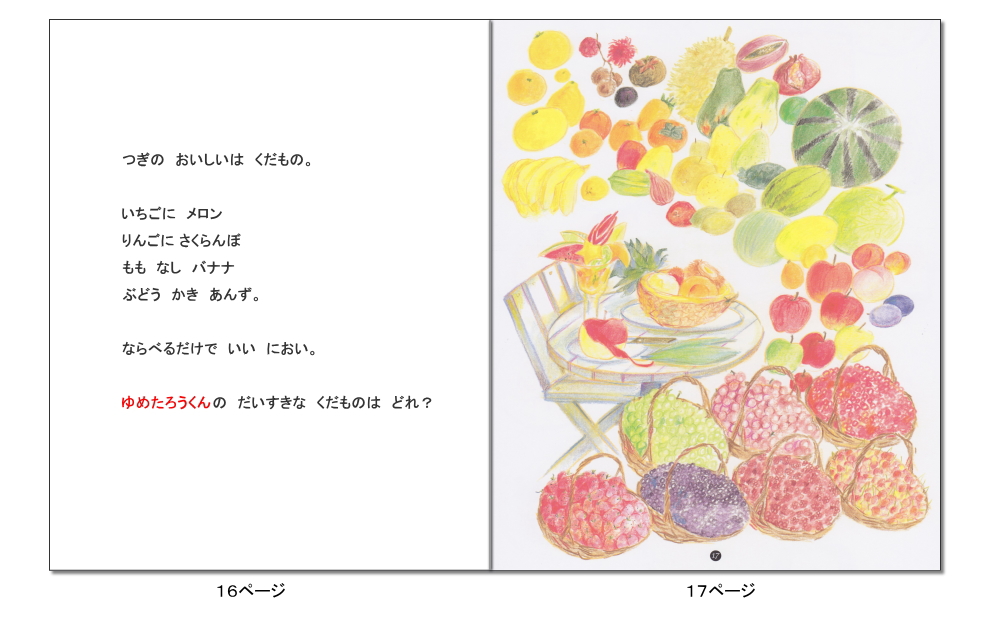 つぎの　おいしいは　くだもの。
いちごに　メロン
りんごに さくらんぼ
もも　なし　バナナ
ぶどう　かき　あんず。
ならべるだけで　いい　におい。
ゆめたろうくんの　だいすきな　くだものは　どれ？
17
16ページ
17ページ